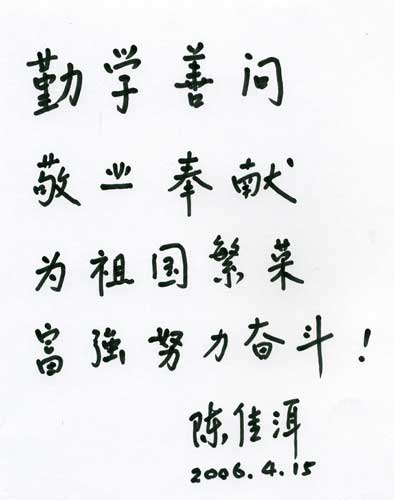 勤学善问
敬业奉献
为祖国繁荣
富強努力奋斗！
陈佳洱
2006.4.15